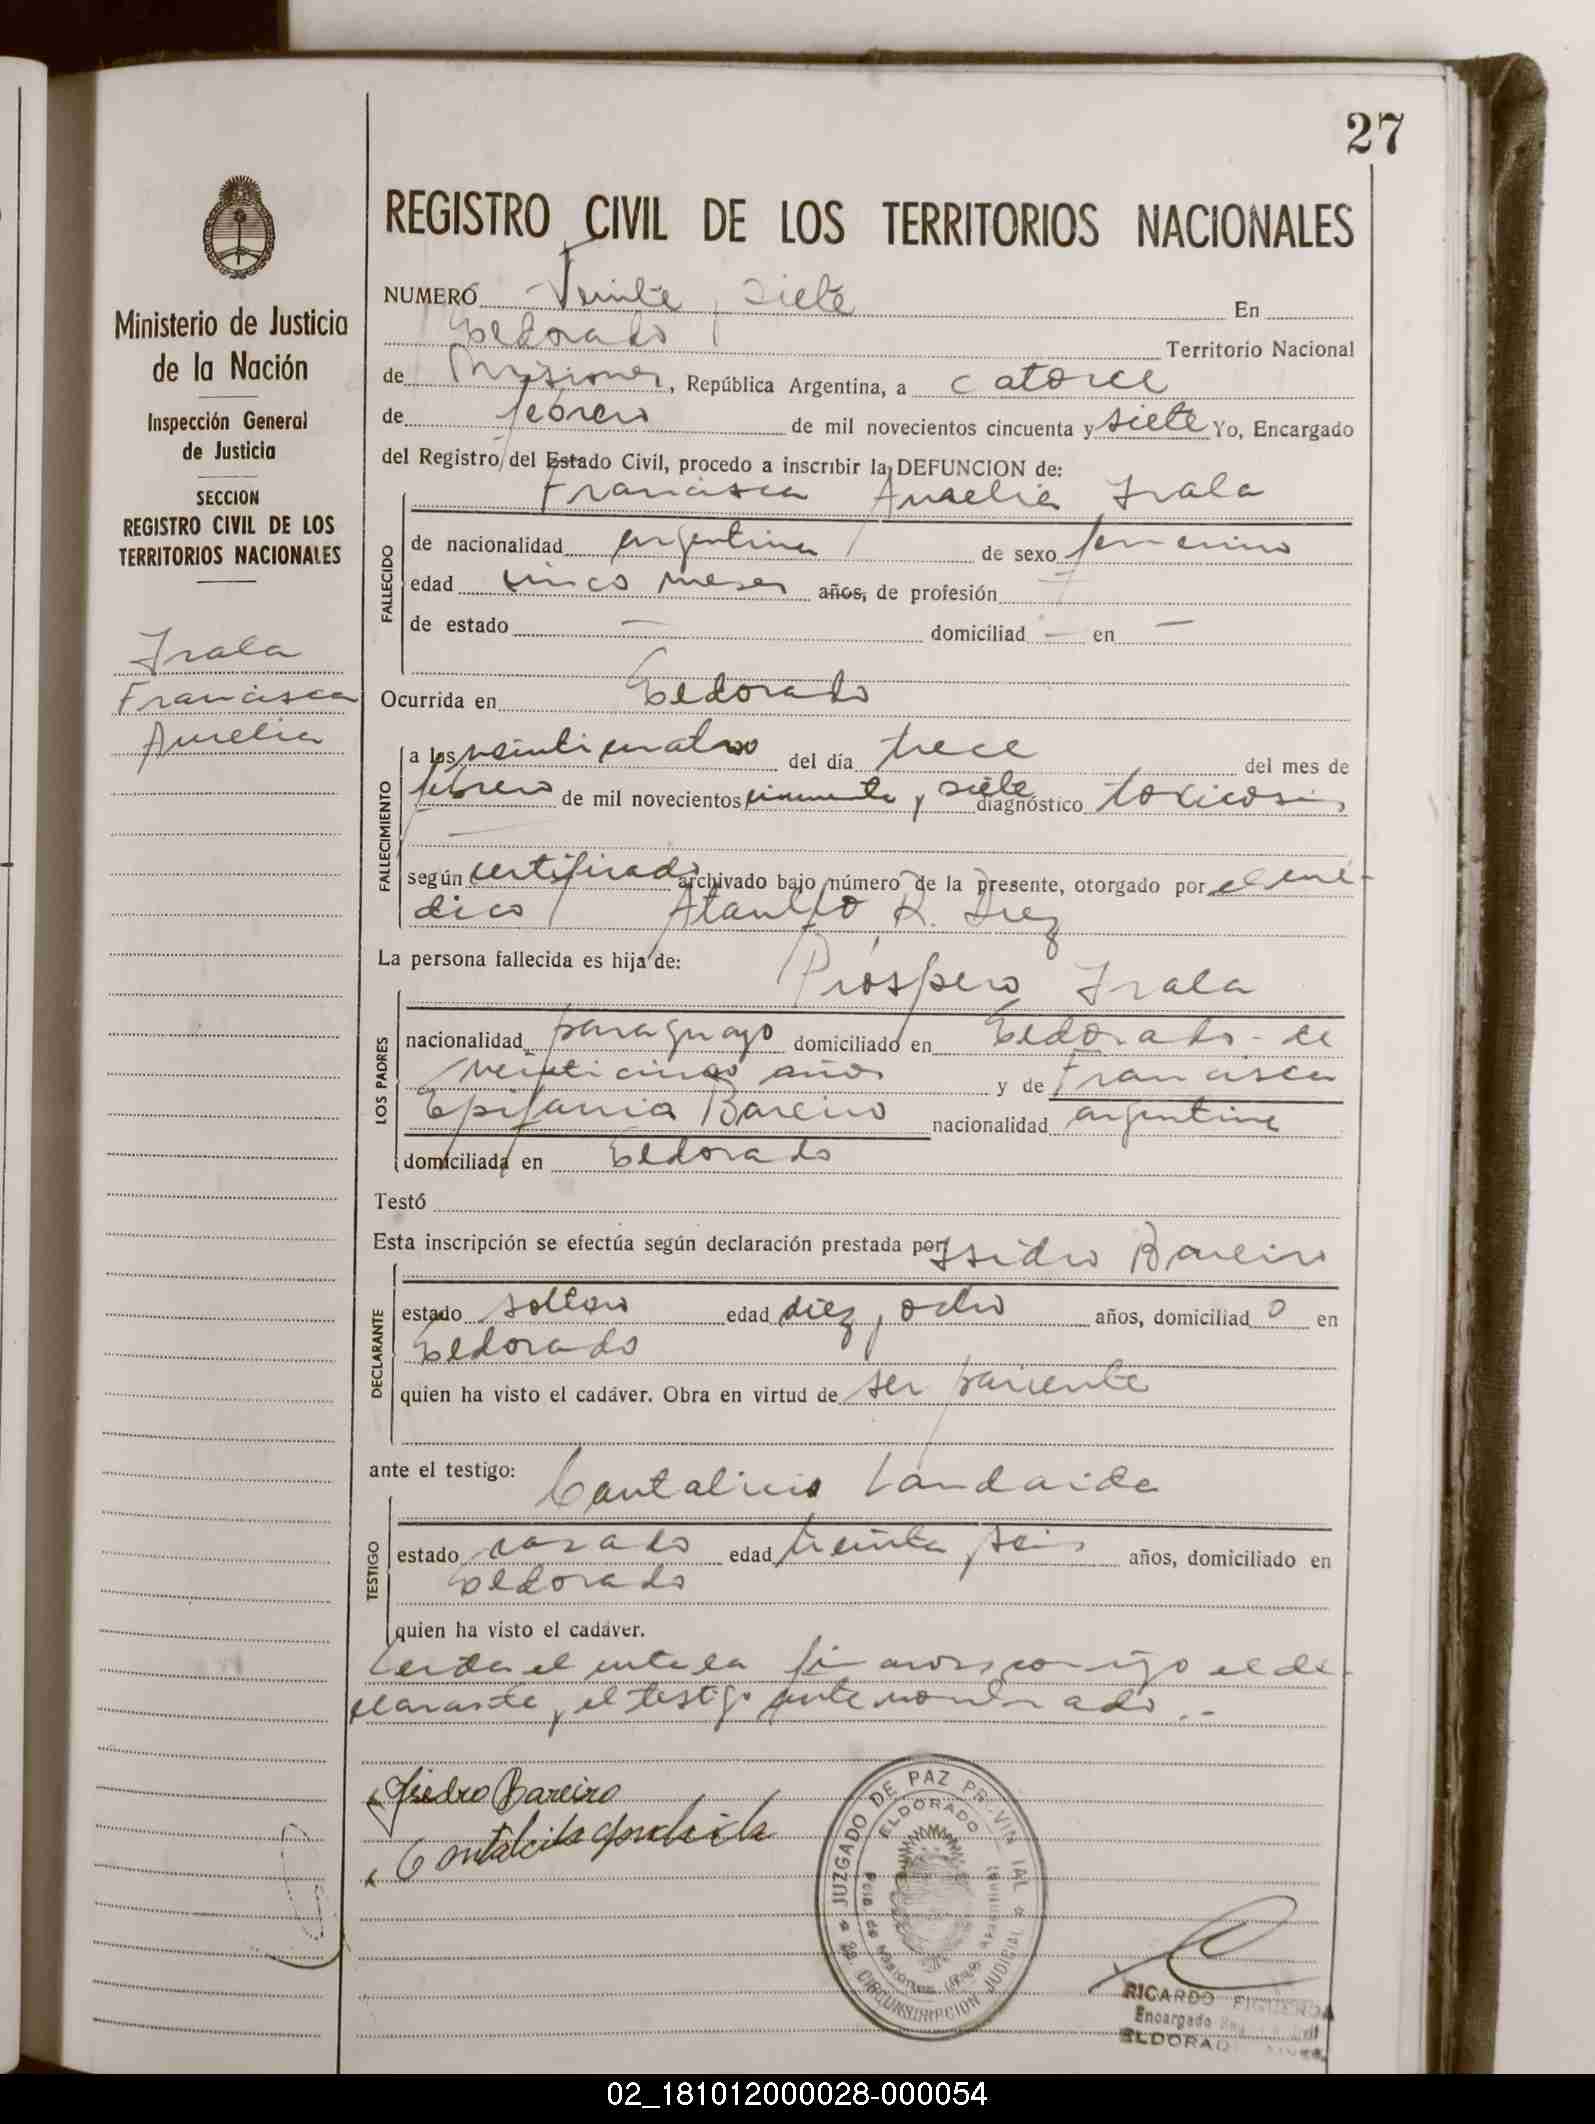 27
REGISTRO CIVIL DE LOS TERRITORIOS NACIONALES
Ministerio de Justicia
de la Nación
Inspección General
de Justicia
SECCION
REGISTRO CIVIL DE LOS
TERRITORIOS NACIONALES
Irala
Francisca
Aurelia
NUMERO Veinte y siete En
Eldorado Territorio Nacional
de Misiones, República Argentina, a catorce
de febrero de mil novecientos cincuenta y siete Yo, Encargado
del Registro del Estado Civil, procedo a inscribir la DEFUNCION de:
Francisca Aurelia Irala
FALLECIDO
de nacionalidad argentina de sexo femenino
edad cinco meses años, de profesión —
de estado — domiciliad — en —
Ocurrida en Eldorado
FALLECIMIENTO
a las veinticuatro del día trece del mes de
febrero de mil novecientos cincuenta y siete diagnóstico toxicosis
según certificado archivado bajo número de la presente, otorgado por el mé-
dico Ataulfo R. Diez
La persona fallecida es hija de: Próspero Irala
LOS PADRES
nacionalidad paraguayo domiciliado en Eldorado - de
veinticinco años y de Francisca
Epifania Bareiro nacionalidad argentina
domiciliada en Eldorado
Testó
Esta inscripción se efectúa según declaración prestada por Isidro Bareiro
DECLARANTE
estado soltero edad diez y ocho años, domiciliad o en
Eldorado
quien ha visto el cadáver. Obra en virtud de ser pariente
ante el testigo: Cantalicio Landaida
TESTIGO
estado casado edad treinta y seis años, domiciliado en
Eldorado
quien ha visto el cadáver.
Leída el acta la firman conmigo el de-
clarante y el testigo antenombrado.-
Isidro Bareiro
JUZGADO DE PAZ
ELDORADO
2a. CIRCUNSCRIPCION JUDICIAL
RICARDO FIGUEROA
Encargado
ELDORADO
02_181012000028-000054